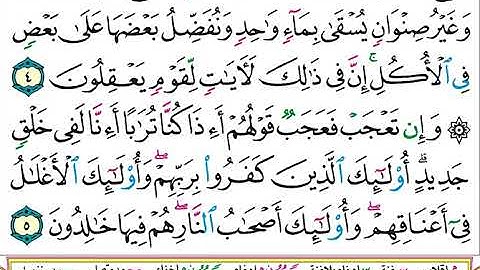 وَغَيْرُ صِنْوَانٍ يُسْقَىٰ بِمَاءٍ وَاحِدٍ وَنُفَضِّلُ بَعْضَهَا عَلَىٰ بَعْضٍ
فِي الْأُكُلِ ۚ إِنَّ فِي ذَٰلِكَ لَآيَاتٍ لِّقَوْمٍ يَعْقِلُونَ ٤
۞ وَإِن تَعْجَبْ فَعَجَبٌ قَوْلُهُمْ أَءِذَا كُنَّا تُرَابًا أَءِنَّا لَفِي خَلْقٍ
جَدِيدٍ ۗ أُولَٰئِكَ الَّذِينَ كَفَرُوا بِرَبِّهِمْ ۖ وَأُولَٰئِكَ الْأَغْلَالُ
فِي أَعْنَاقِهِمْ ۖ وَأُولَٰئِكَ أَصْحَابُ النَّارِ ۖ هُمْ فِيهَا خَالِدُونَ ٥